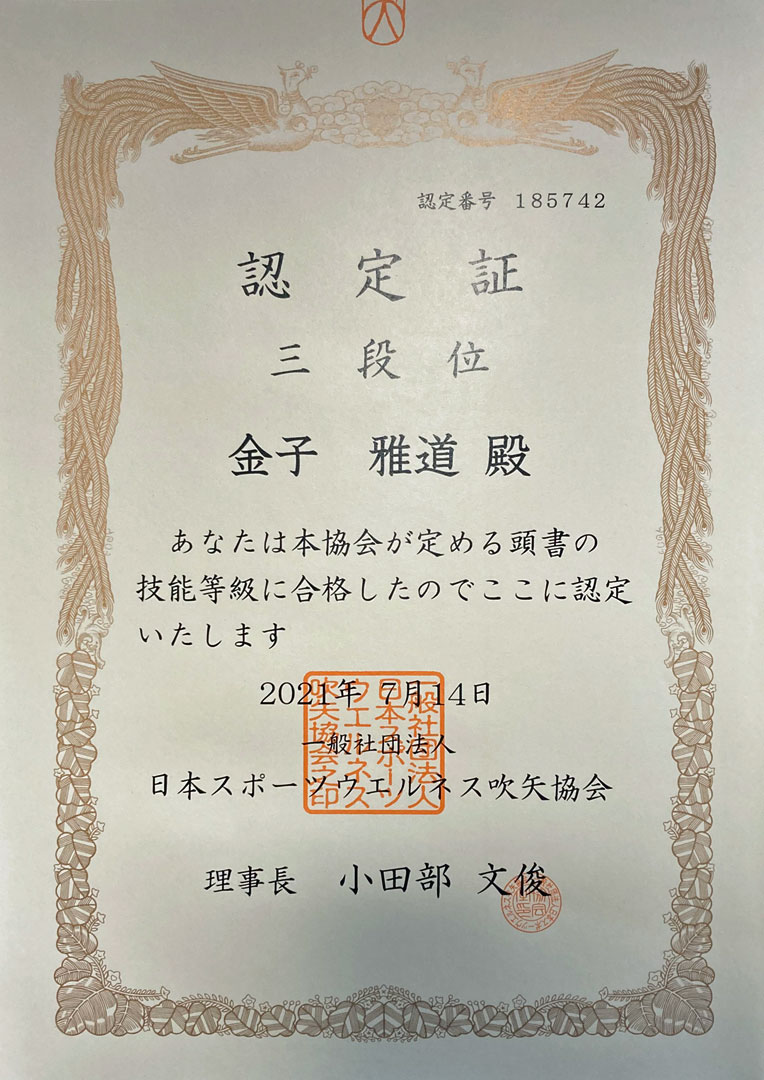 認定番号 185742
認定証
三段位
金子 雅道 殿
あなたは本協会が定める頭書の
技能等級に合格したのでここに認定
いたします
2021年 7月14日
一般社団法人
日本スポーツウエルネス吹矢協会
一般社団法人
日本スポーツ
ウエルネス
吹矢協会之印
理事長 小田部 文俊